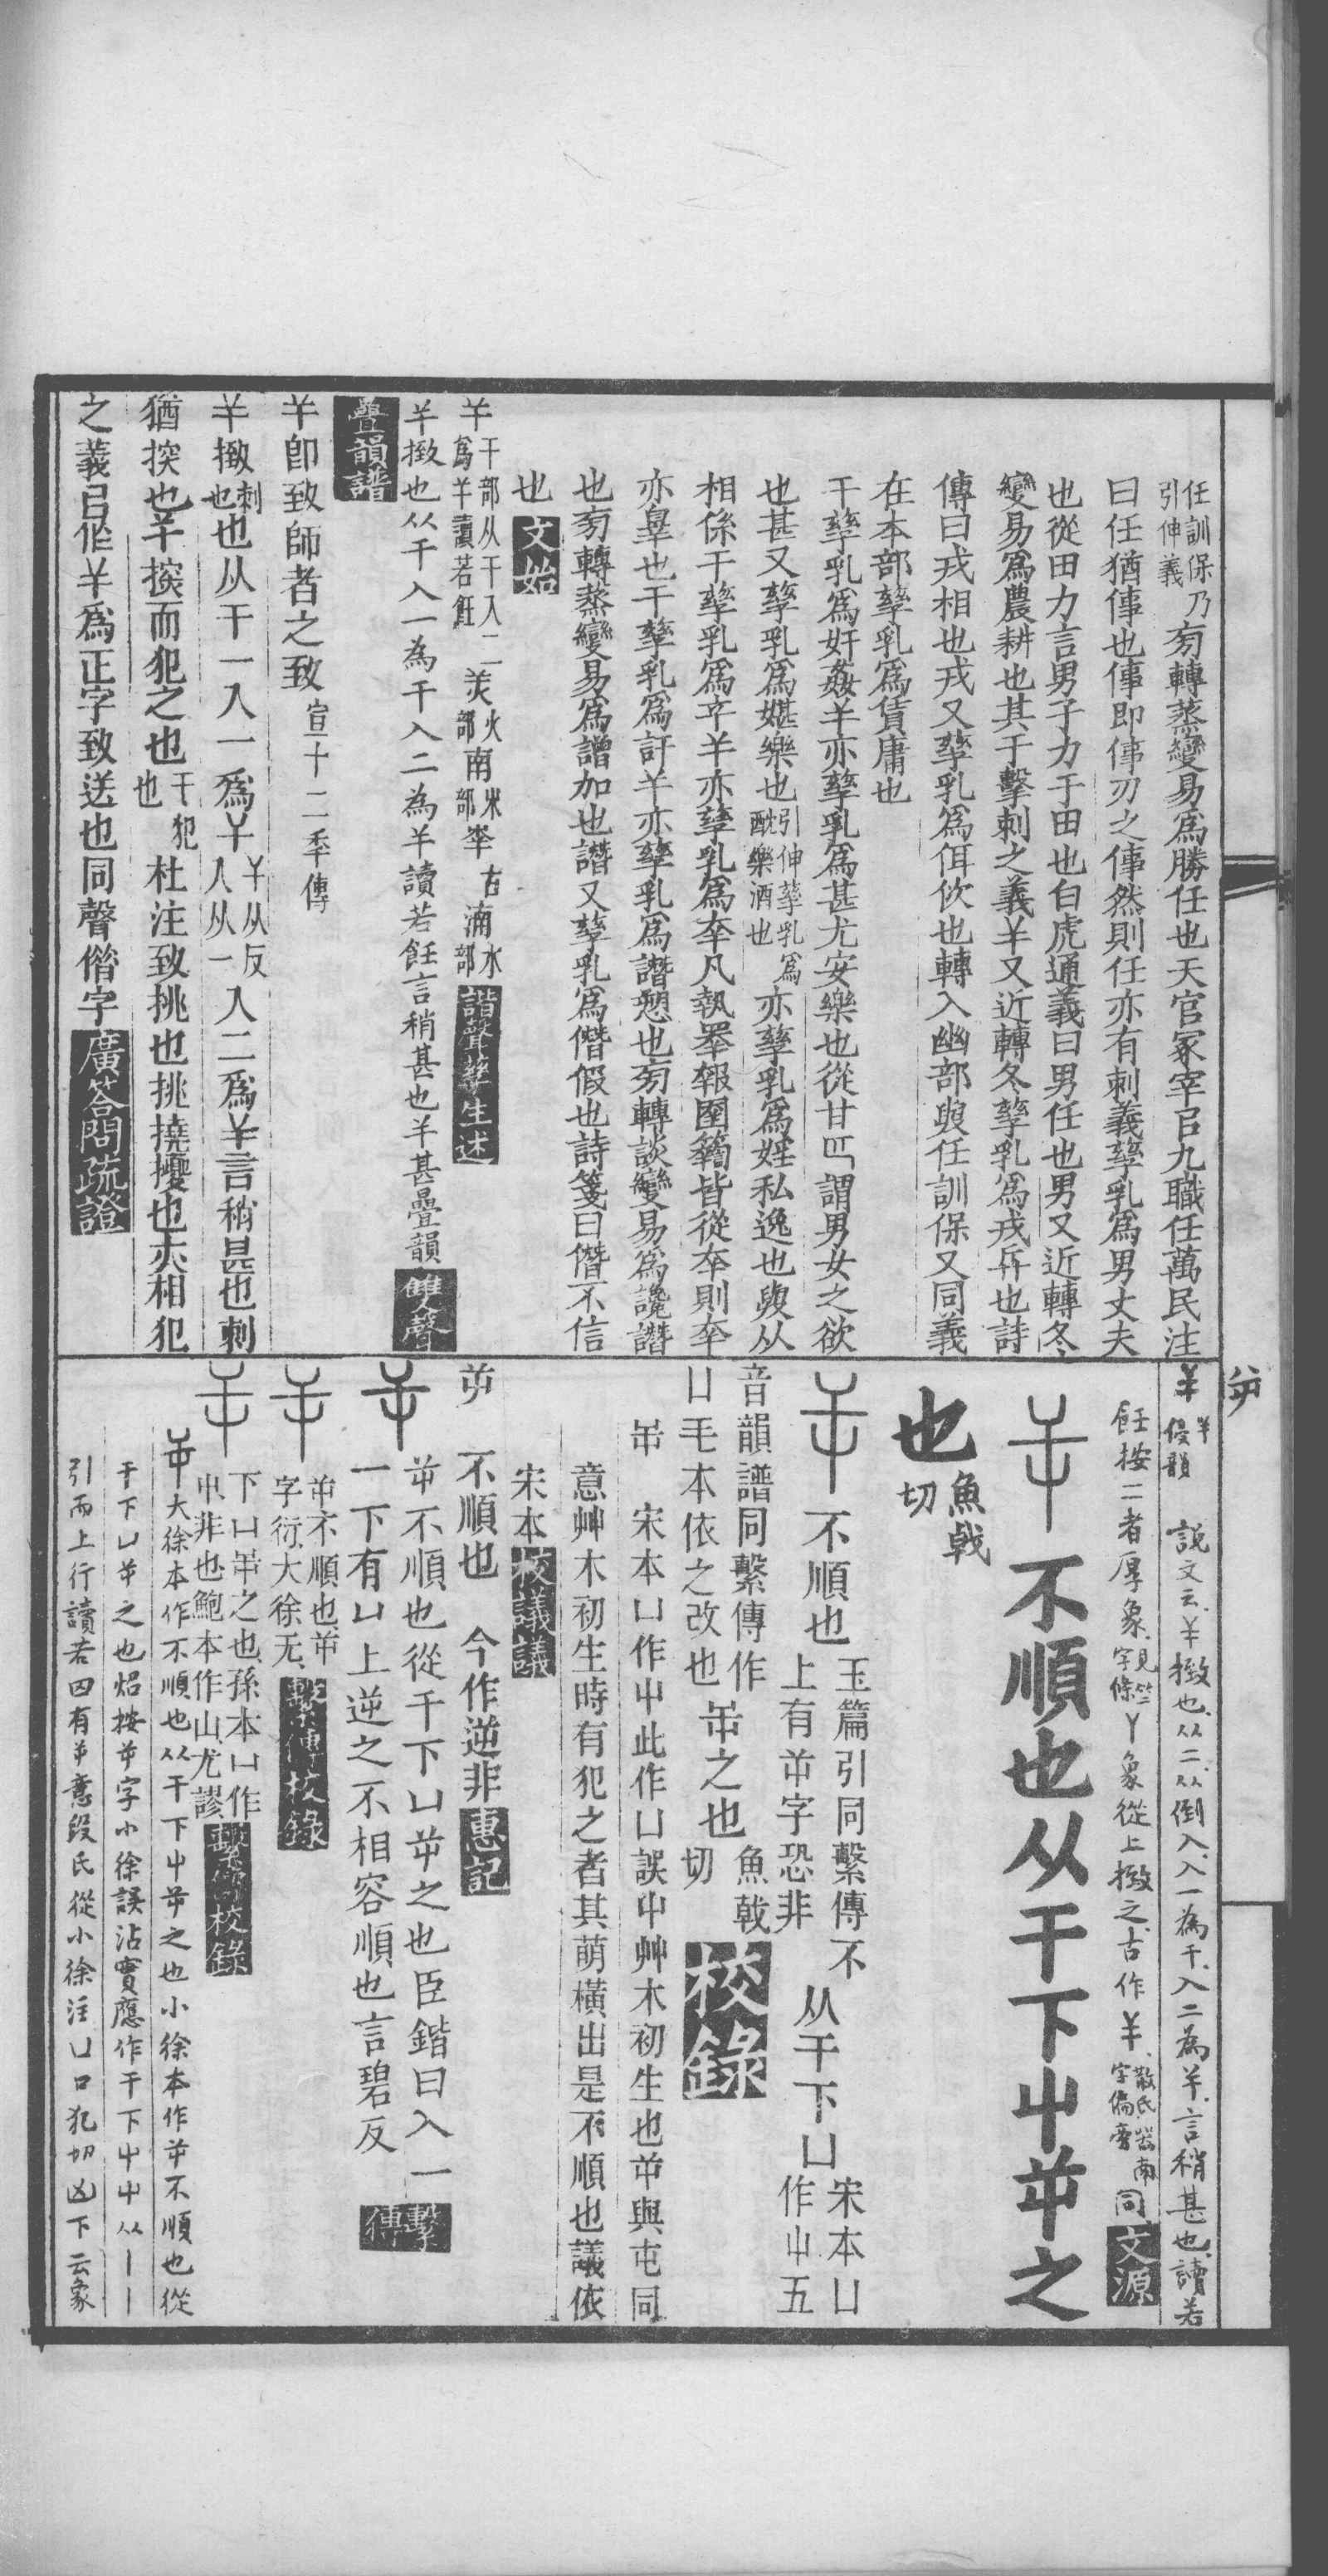 任訓保乃引伸義旁轉蒸變易爲勝任也天官冢宰㠯九職任萬民注
曰任猶倳也倳即倳刃之倳然則任亦有刺義孳乳爲男丈夫
也從田力言男子力于田也白虎通義曰男任也男又近轉冬
變易爲農耕也其于擊刺之義𢆉又近轉冬孳乳爲戎兵也詩
傳曰戎相也戎又孳乳爲佴佽也轉入幽部與任訓保又同義
在本部孳乳爲賃庸也
干孳乳爲奸姦𢆉亦孳乳爲甚尤安樂也從甘匹謂男女之欲
也甚又孳乳爲媅樂也引伸孳乳爲酖樂酒也亦孳乳爲婬私逸也㚔从
相係干孳乳爲䇂𢆉亦孳乳爲㚔凡執睪報圉籋皆從㚔則㚔
亦辠也干孳乳爲訐𢆉亦孳乳爲譖愬也旁轉談變易爲讒譖
也旁轉蒸變易爲譄加也譖又孳乳爲僭假也詩箋曰僭不信
也文始
𢆉干部从干入二爲𢆉讀若飪 羙火部南𣎵部㚔古湳水部諧聲孳生述
𢆉撳也从干入一為干入二為𢆉讀若飪言稍甚也𢆉甚疊韻雙聲
疊韻譜
𢆉卽致師者之致宣十二秊傳
𢆉撳刺也也从干一入一爲干𢆉从反入从一入二爲𢆉言稍甚也刺
猶揬也𢆉揬而犯之也干犯也杜注致挑也挑撓擾也亦相犯
之義㠯作𢆉爲正字致送也同聲僭字廣答問疏證
屰
𢆉𢆉侵韻 說文云𢆉撳也从二从倒入入一為干入二為𢆉言稍甚也讀若
飪按二者厚象見竺字條丫象從上撳之古作𢆉散氏器南字偏旁同文源
屰 不順也从干下屮屰之
也魚戟切
屰 不順也玉篇引同繫傳不上有屰字恐非从干下凵宋本凵作屮五
音韻譜同繫傳作凵毛本依之改也屰之也魚戟切校錄
屰 宋本凵作屮此作凵誤屮艸木初生也屰與屯同
意艸木初生時有犯之者其萌橫出是不順也議依
宋本校議議
屰 不順也 今作逆非惠記
屰 屰不順也從干下凵屰之也臣鍇曰入一
一下有凵上逆之不相容順也言碧反繫傳
屰 屰不順也屰字衍大徐无繫傳校錄
屰 下凵屰之也孫本凵作屮非也鮑本作山尤謬繫傳校錄
屰大徐本作不順也从干下屮屰之也小徐本作屰不順也從
干下凵屰之也炤按屰字小徐誤沾實應作干下屮屮从丨丨
引而上行讀若囟有屰意段氏從小徐注凵口犯切凶下云象